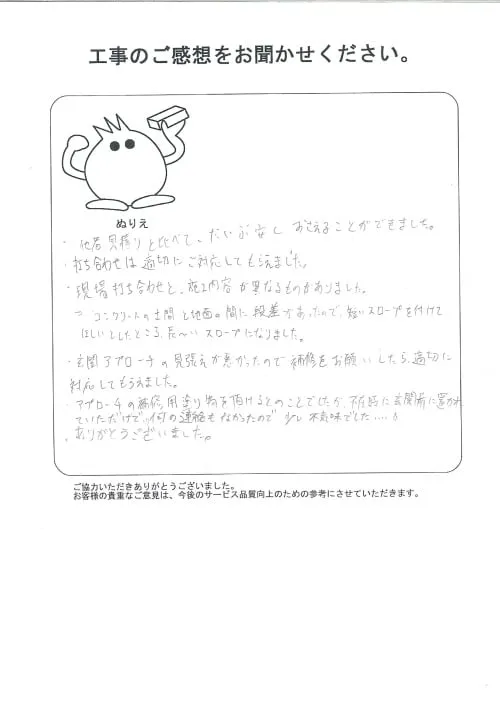 工事のご感想をお聞かせください。
ぬりえ
・他店見積りと比べて、だいぶ安くおさえることができました。
・打ち合わせは適切にご対応してもらえました。
・現場打ち合わせと、施工内容が異なるものがありました。
コンクリートの土間と地面の間に段差があったので、短いスロープを付けて
ほしいとしたところ、長〜いスロープになりました。
・玄関アプローチの見張えが悪かったので補修をお願いしたら、適切に
対応してもらえました。
・アプローチの補修用塗り物を頂けるとのことでしたが、不在時に玄関前に置かれ
ていただけで、何の連絡もなかったので少し不気味でした....。
ありがとうございました。
ご協力いただきありがとうございました。
お客様の貴重なご意見は、今後のサービス品質向上のための参考にさせていただきます。